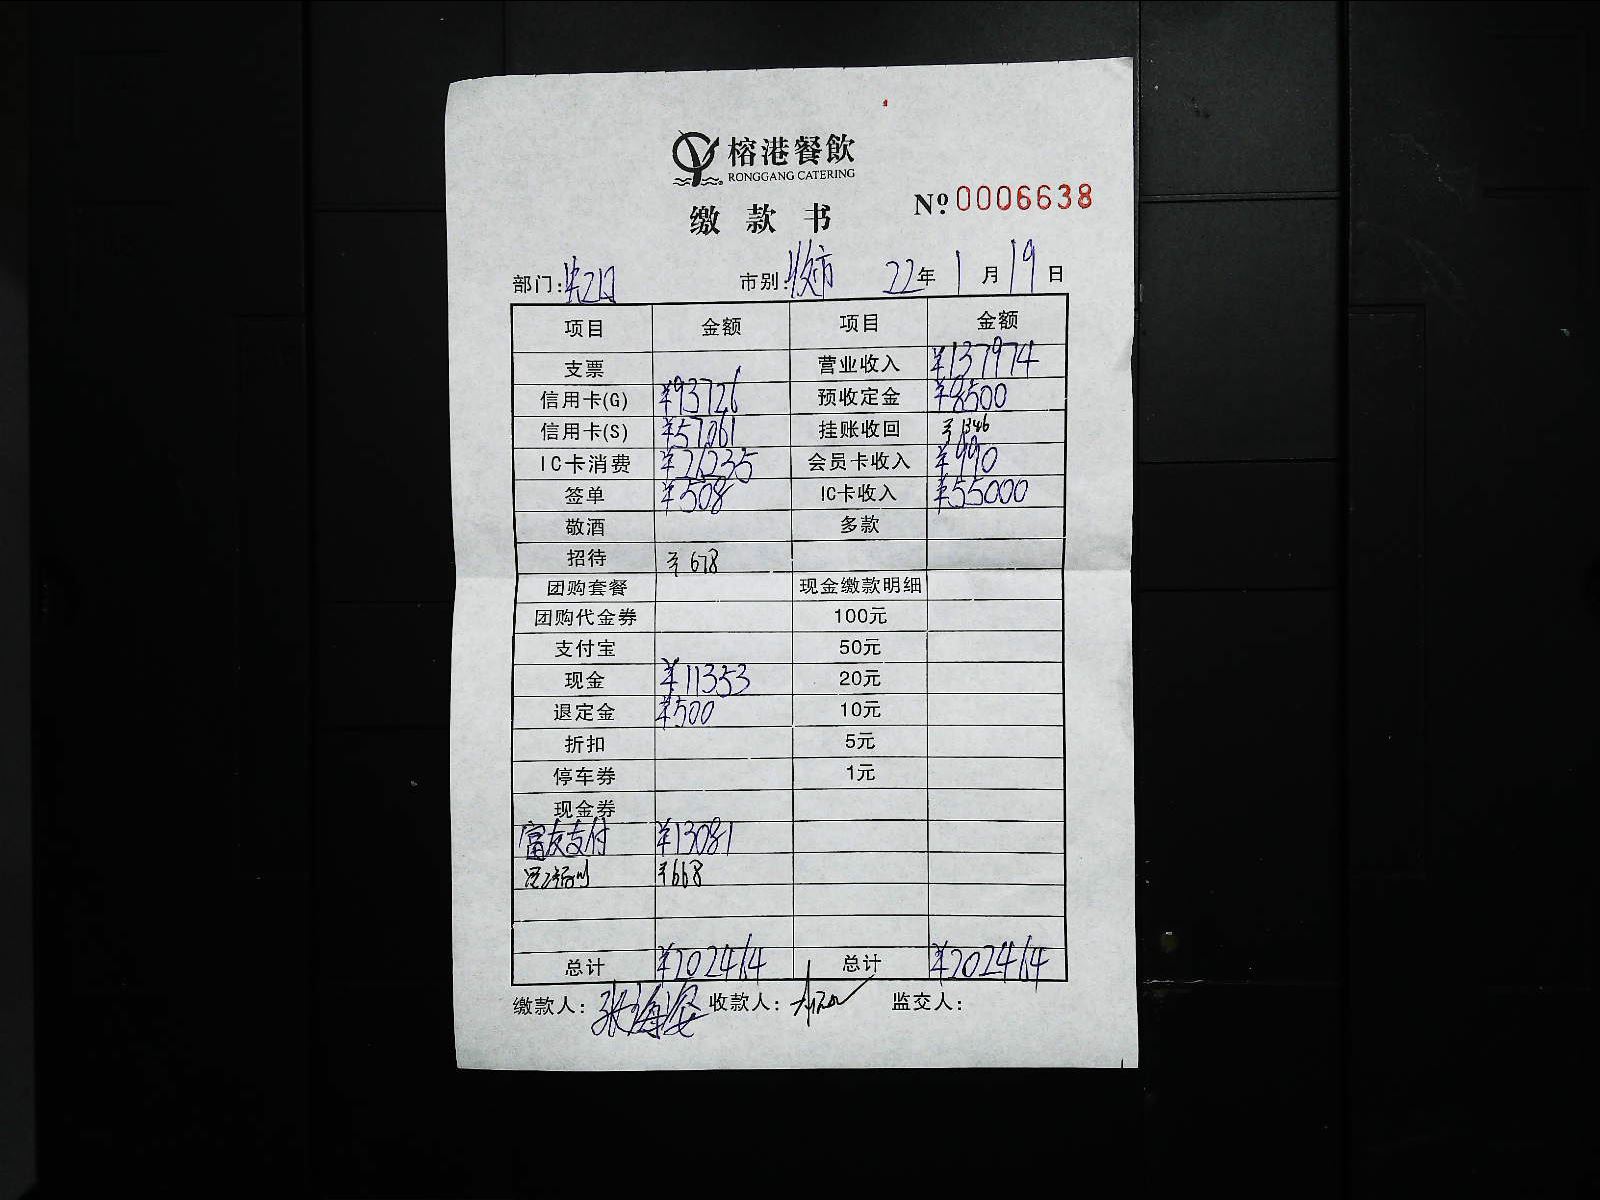 榕港餐飲
RONGGANG CATERING
缴款书
Nº 0006638
部门: 市别: 夜市 22年 1月 19日
项目 金额 项目 金额
支票 营业收入 ¥137974
信用卡(G) ¥93726 预收定金 ¥8500
信用卡(S) ¥57061 挂账收回 ¥1346
IC卡消费 ¥26235 会员卡收入 ¥990
签单 ¥508 IC卡收入 ¥55000
敬酒 多款
招待 ¥678
团购套餐 现金缴款明细
团购代金券 100元
支付宝 50元
现金 ¥11353 20元
退定金 ¥500 10元
折扣 5元
停车券 1元
现金券
富友支付 ¥13081
¥668
总计 ¥202464 总计 ¥202464
缴款人: 张海姿 收款人: 监交人: